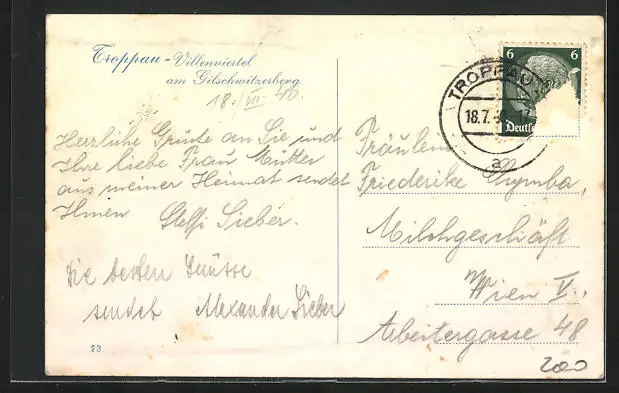 Troppau - Villenviertel
am Gilschwitzerberg
18./VII. 40.
Herzliche Grüße an Sie und
Ihre liebe Frau Mutter
aus meiner Heimat sendet
Ihnen Steffi Sieber.
Die besten Grüsse
sendet Alexander Sieber
23
6 6
Deutsch
TROPPAU
18.7.
a
Fräulein
Friederike Cymba,
Milchgeschäft
Wien V.,
Arbeitergasse 48
200